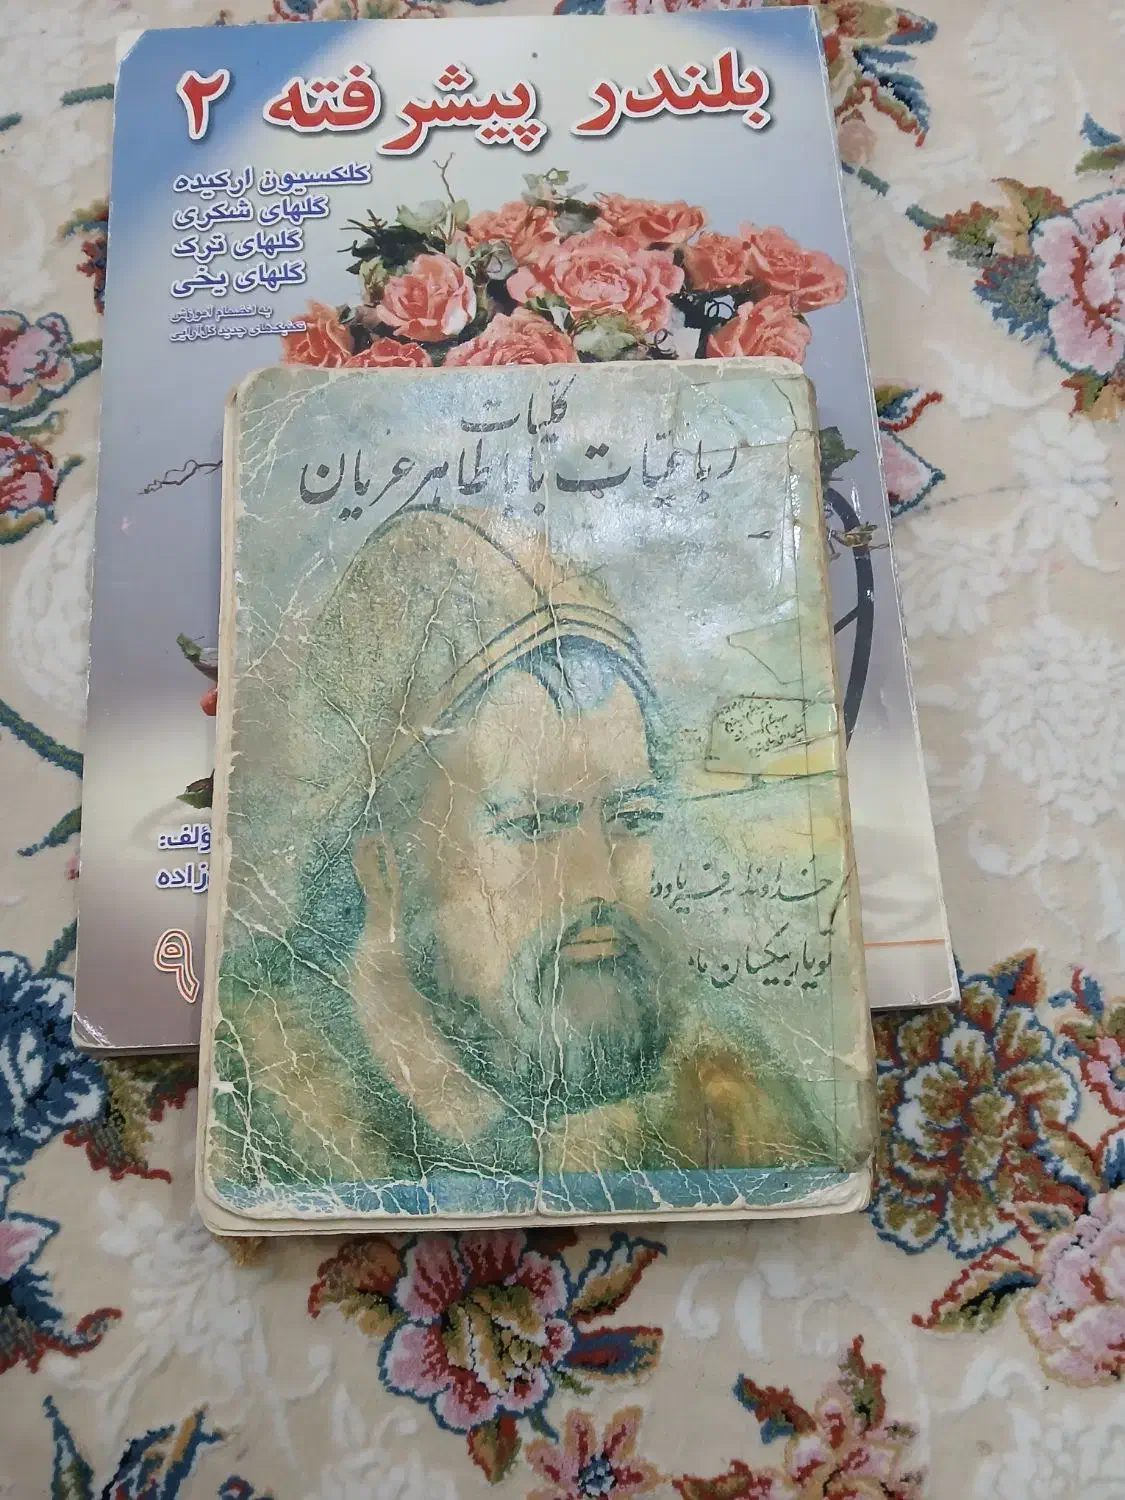 بلندر پیشرفته ۲
کلکسیون ارکیده
گلهای شکری
گلهای ترک
گلهای یخی
به انضمام آموزش
تکنیک‌های جدید گل‌آرایی
کلیّات
رباعیّات باباطاهر عریان
خداوندا به فریاد
تو یار بیکسان
ؤلف:
زاده